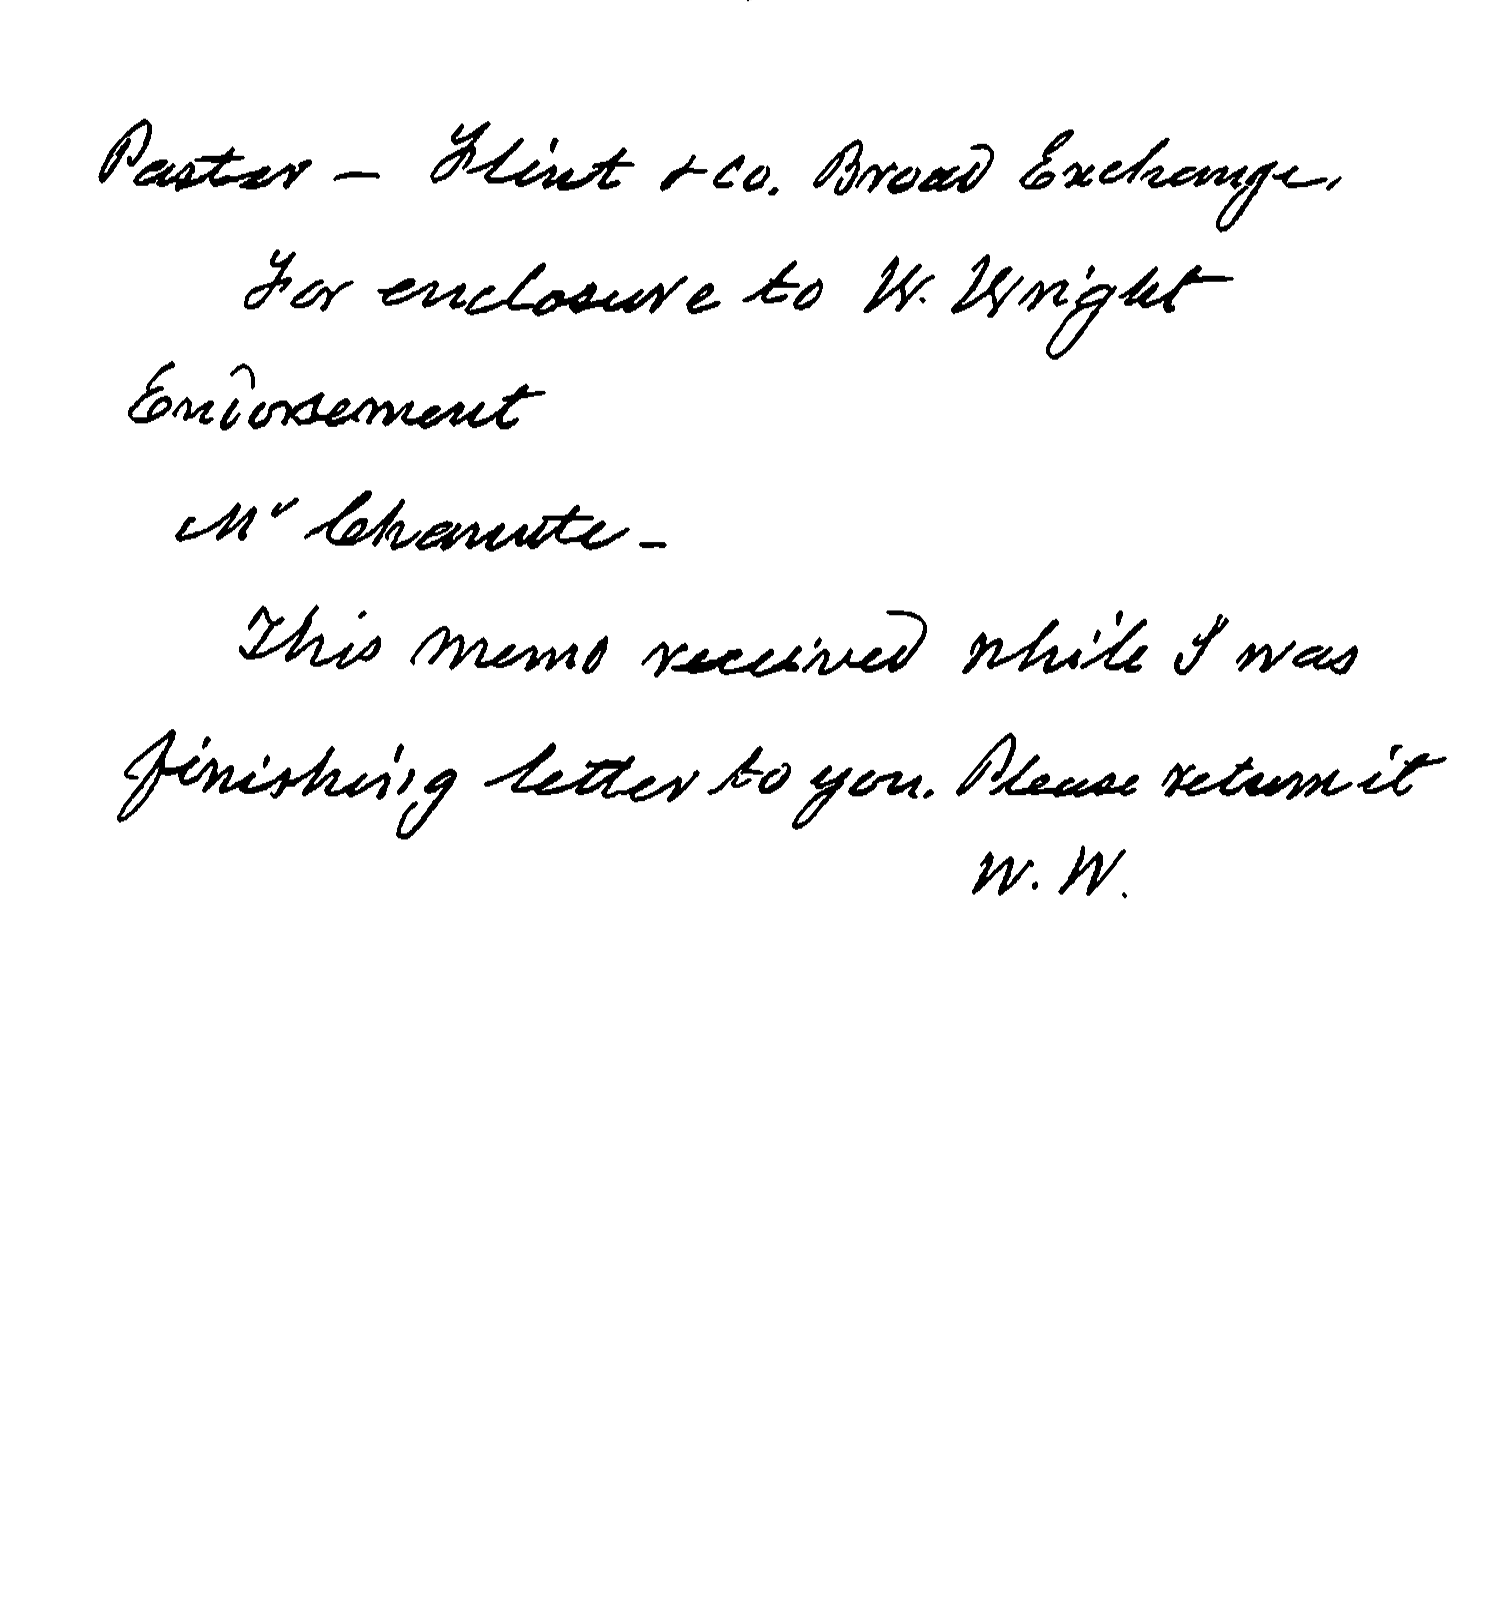 Pastor - Flint & Co. Broad Exchange.
For enclosure to W. Wright
Endorsement
Mr Chanute -
This memo received while I was
finishing letter to you. Please return it
W. W.